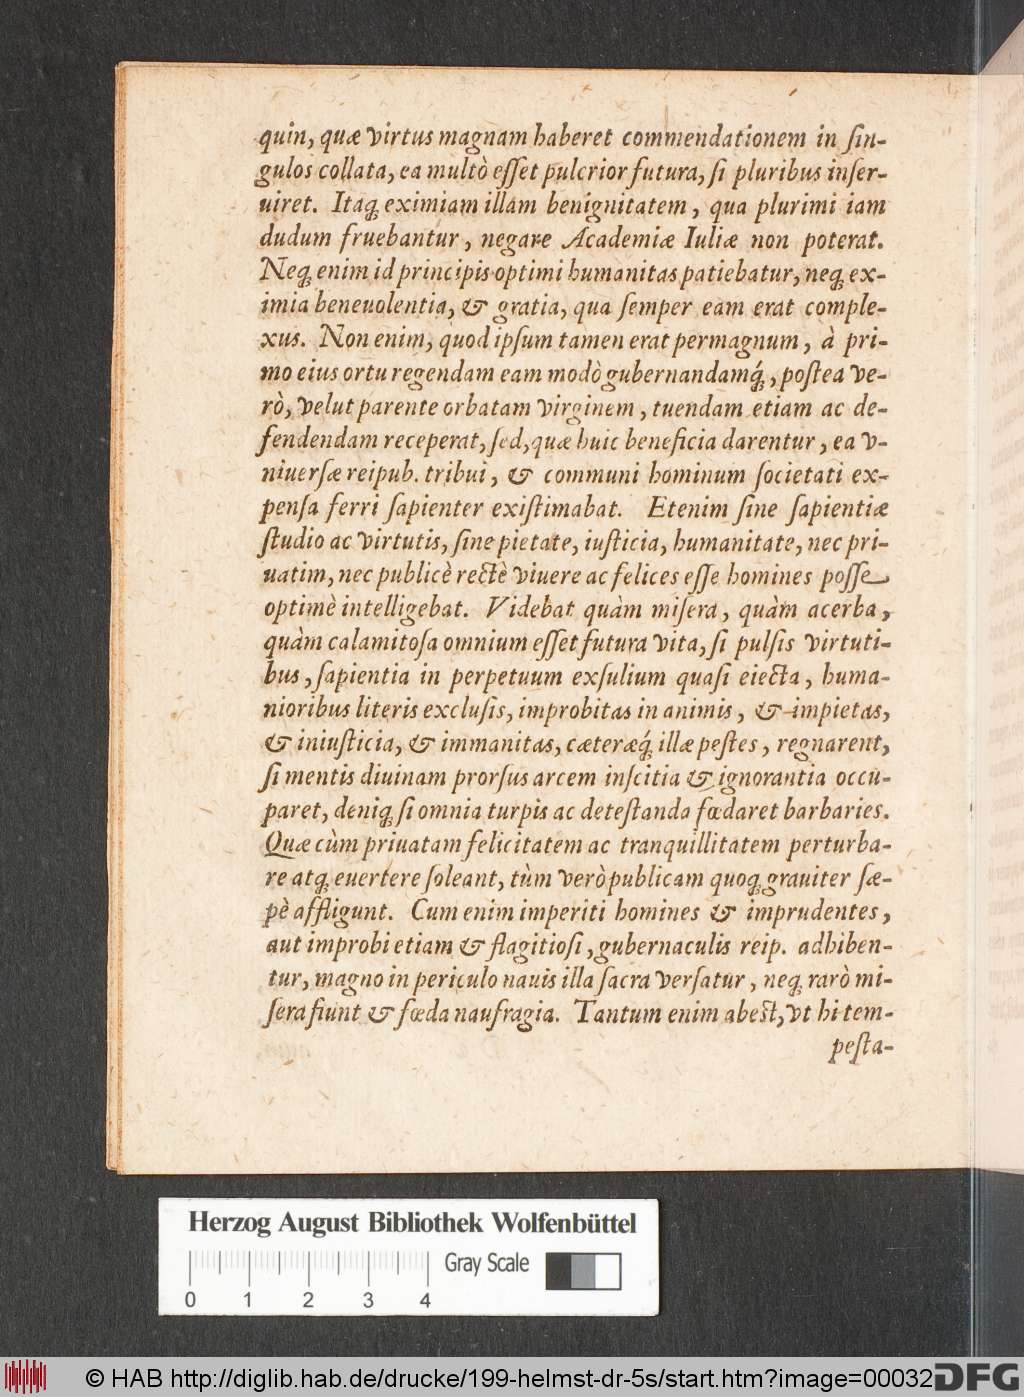 quin, quæ virtus magnam haberet commendationem in ſin-
gulos collata, ea multò eſſet pulcrior futura, ſi pluribus inſer-
uiret. Itaq́; eximiam illam benignitatem, qua plurimi iam
dudum fruebantur, negare Academiæ Iuliæ non poterat.
Neq; enim id principis optimi humanitas patiebatur, neq; ex-
imia beneuolentia, & gratia, qua ſemper eam erat comple-
xus. Non enim, quod ipſum tamen erat permagnum, à pri-
mo eius ortu regendam eam modò gubernandamq́;, poſtea ve-
rò, velut parente orbatam virginem, tuendam etiam ac de-
fendendam receperat, ſed, quæ huic beneficia darentur, ea v-
niuerſæ reipub. tribui, & communi hominum ſocietati ex-
penſa ferri ſapienter exiſtimabat. Etenim ſine ſapientiæ
ſtudio ac virtutis, ſine pietate, iuſticia, humanitate, nec pri-
uatim, nec publicè rectè viuere ac felices eſſe homines poſſe
optimè intelligebat. Videbat quàm miſera, quàm acerba,
quàm calamitoſa omnium eſſet futura vita, ſi pulſis virtuti-
bus, ſapientia in perpetuum exſulium quaſi eiecta, huma-
nioribus literis excluſis, improbitas in animis, & impietas,
& iniuſticia, & immanitas, cæteræq́; illæ peſtes, regnarent,
ſi mentis diuinam prorſus arcem inſcitia & ignorantia occu-
paret, deniq; ſi omnia turpis ac deteſtanda fœdaret barbaries.
Quæ cùm priuatam felicitatem ac tranquillitatem perturba-
re atq; euertere ſoleant, tùm verò publicam quoq; grauiter ſæ-
pè affligunt. Cum enim imperiti homines & imprudentes,
aut improbi etiam & flagitioſi, gubernaculis reip. adhiben-
tur, magno in periculo nauis illa ſacra verſatur, neq; rarò mi-
ſera fiunt & fœda naufragia. Tantum enim abeſt, vt hi tem-
peſta-
Herzog August Bibliothek Wolfenbüttel
Gray Scale
0 1 2 3 4
© HAB http://diglib.hab.de/drucke/199-helmst-dr-5s/start.htm?image=00032
DFG